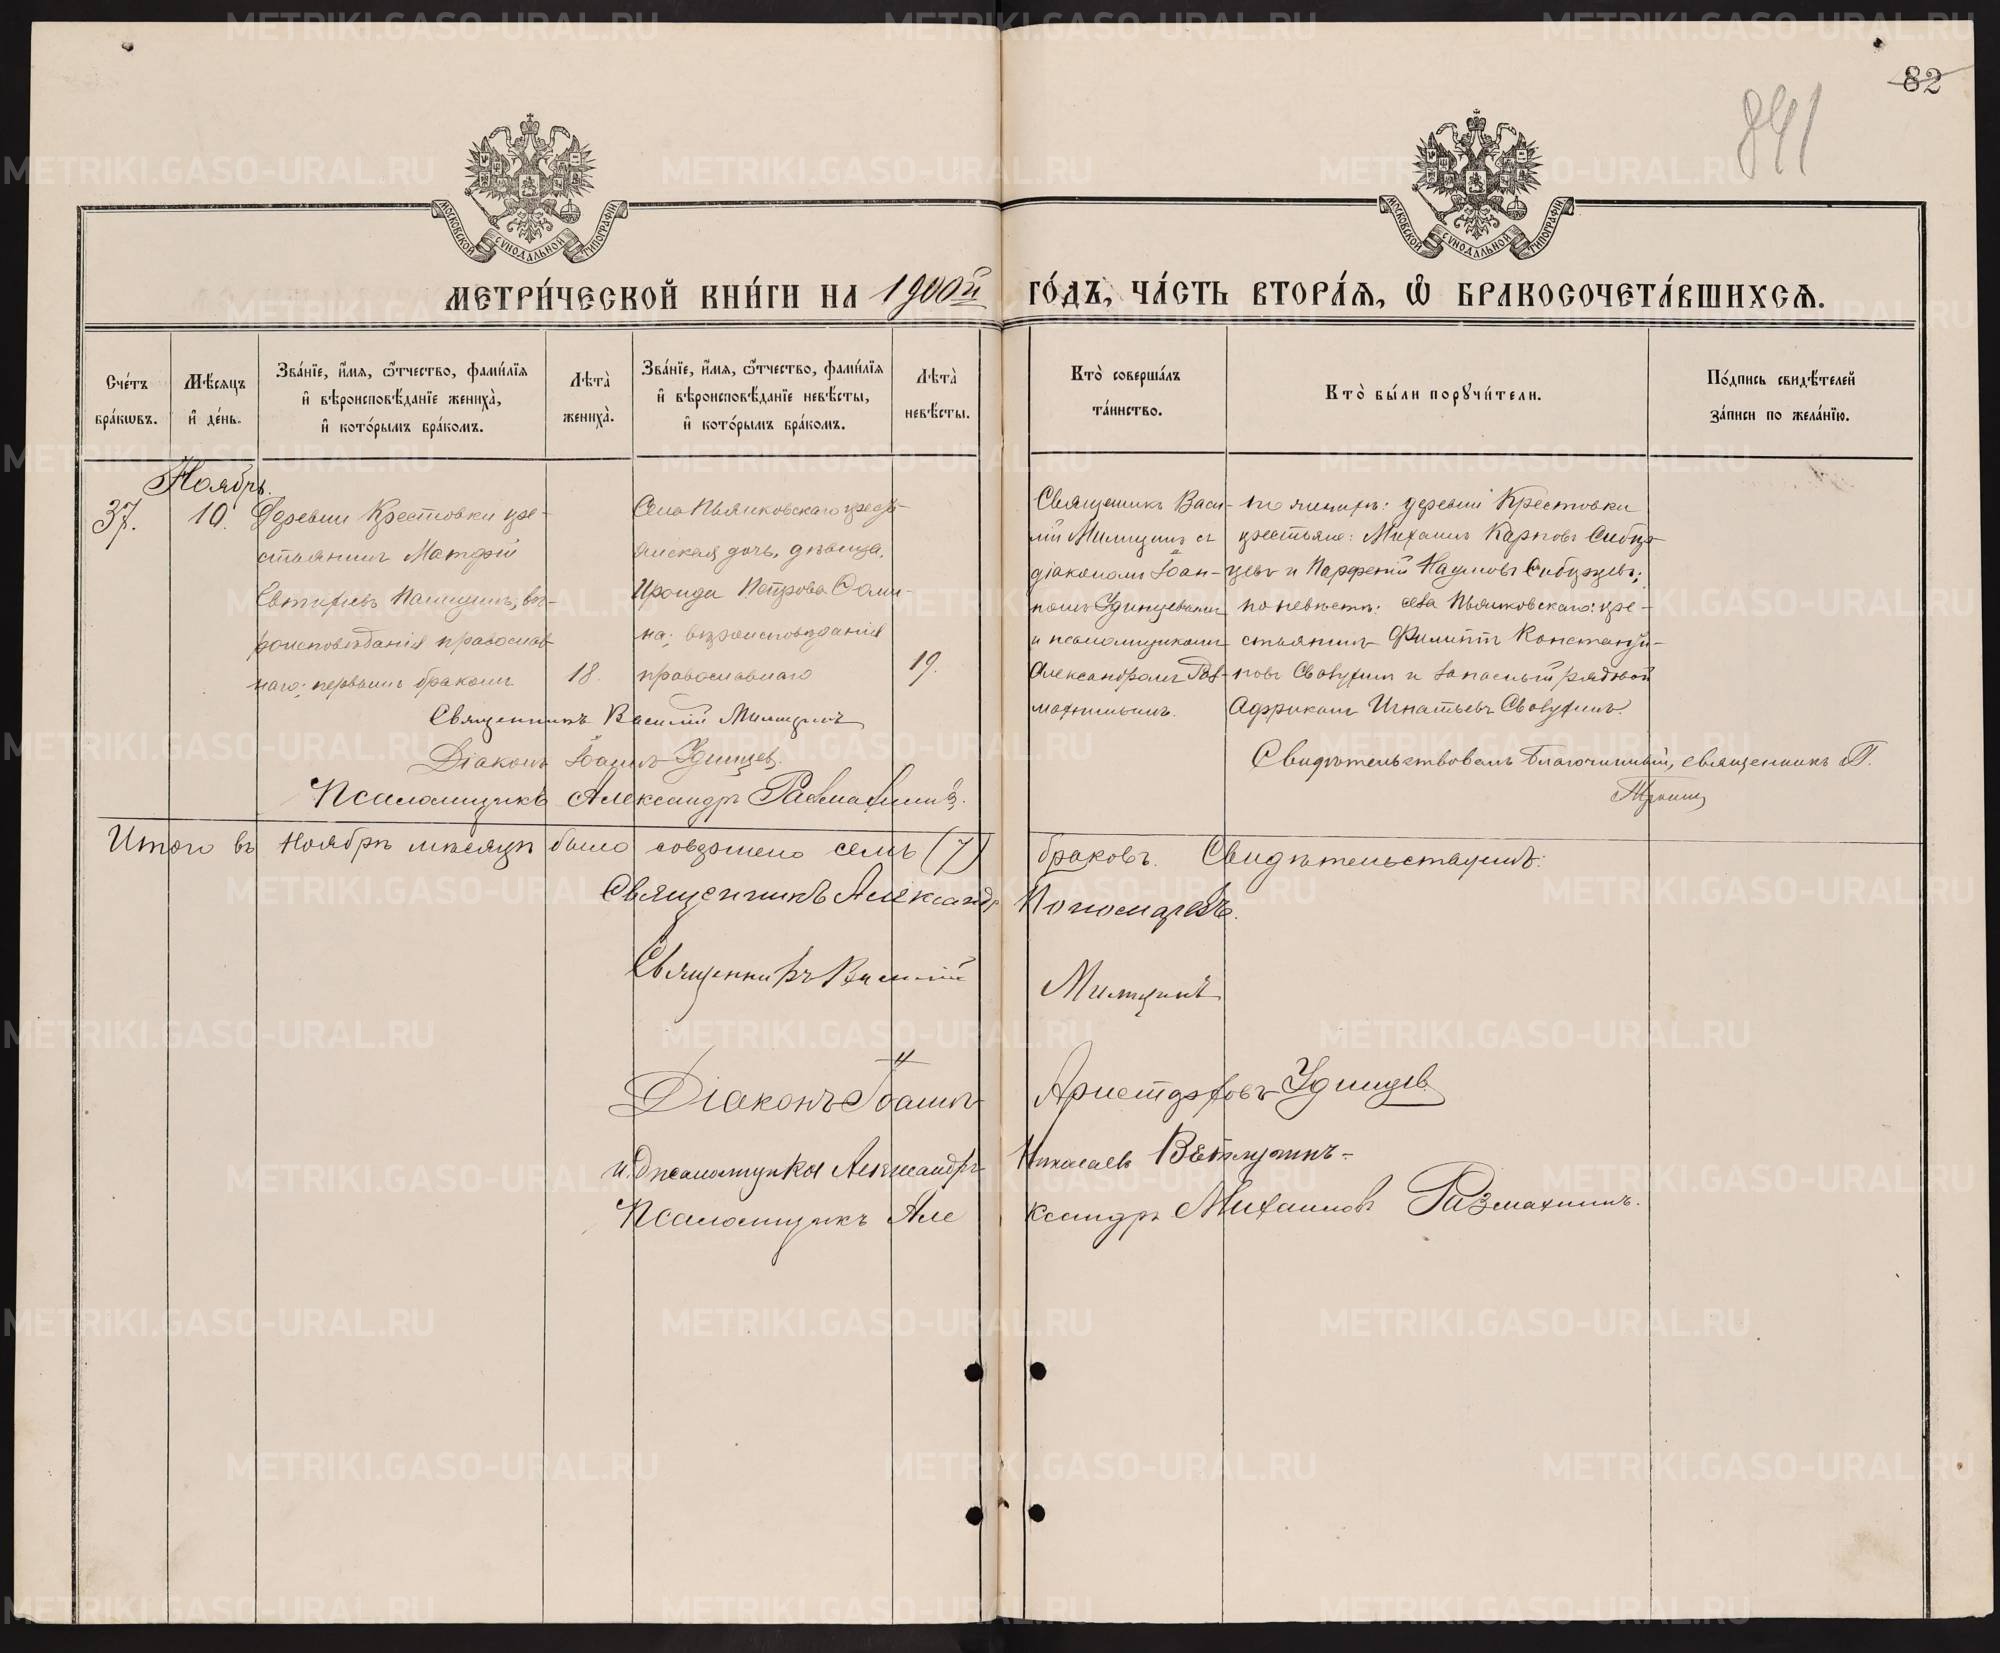 82
841
МОСКОВСКОЙ СѴНОДАЛЬНОЙ ТИПОГРАФІИ
МОСКОВСКОЙ СѴНОДАЛЬНОЙ ТИПОГРАФІИ
МЕТРИ́ЧЕСКОЙ КНИ́ГИ НА 1900й ГО́ДЪ, ЧА́СТЬ ВТОРА́Ѧ, Ѡ҆ БРАКОСОЧЕТА́ВШИХСѦ.
Сче́тъ бра́кѡвъ.
Мѣ́сѧцъ и҆ де́нь.
Зва́нїе, и҆́мѧ, ѿ́чество, фами́лїѧ и҆ вѣроисповѣ́данїе жениха̀, и҆ кото́рымъ бра́комъ.
Лѣта̀ жениха̀.
Зва́нїе, и҆́мѧ, ѿ́чество, фами́лїѧ и҆ вѣроисповѣ́данїе невѣ́сты, и҆ кото́рымъ бра́комъ.
Лѣта̀ невѣ́сты.
Кто̀ соверша́лъ та́инство.
Кто̀ бы́ли порꙋчи́тели.
По́дпись свидѣ́телей за́писи по жела́нїю.
Ноябрь.
37.
10.
Деревни Крестовки кре-
стьянинъ Матфій
Евтихіевъ Палицынъ, вѣ-
роисповѣданія православ-
наго; первымъ бракомъ
18.
Села Пьянковскаго кресть-
янская дочь, дѣвица,
Ироида Петрова
на; вѣроисповѣданія
православнаго
19.
Священникъ Васи-
лій Милицинъ съ
діакономъ Іоан-
номъ Удинцевымъ
и псаломщикомъ
Александромъ Раз-
махнинымъ.
По женихѣ: деревни Крестовки
крестьяне: Михаилъ Карповъ Сибир-
цевъ и Парфеній Наумовъ Сибирцевъ;
по невѣстѣ: села Пьянковскаго: кре-
стьянинъ Филиппъ Константи-
новъ и запасный рядовой
Африканъ Игнатьевъ
Священникъ Василій Милицинъ
Діаконъ Іоаннъ Удинцев.
Псаломщикъ Александръ Размахнинъ.
Свидѣтельствовалъ Благочинный, священникъ П.
Итого въ Ноябрѣ мѣсяцѣ было совершено семь (7) браковъ. Свидѣтельствуемъ:
Священникъ Александръ Пономаревъ.
Священникъ Василій Милицинъ
Діаконъ Іоаннъ Аристарховъ Удинцев.
и. д. псаломщика Александръ Николаевъ Ветлугинъ.
Псаломщикъ Александръ Михаиловъ Размахнинъ.
METRIKI.GASO-URAL.RU